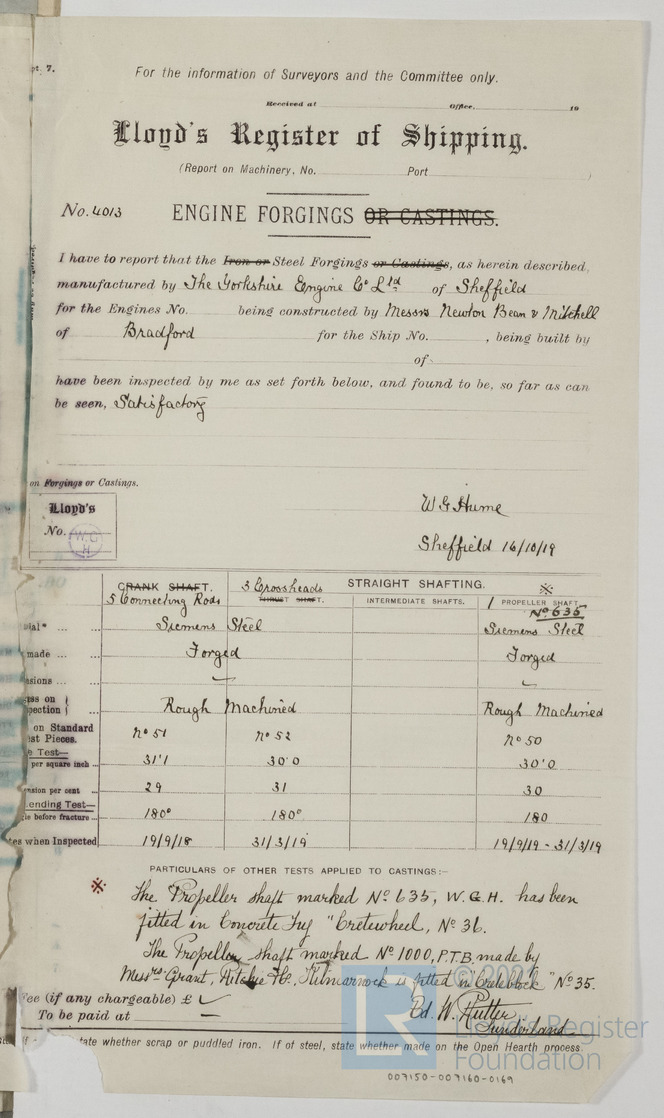 pt. 7.
For the information of Surveyors and the Committee only.
Received at Office, 19
Lloyd's Register of Shipping.
(Report on Machinery, No. Port )
No. 4013 ENGINE FORGINGS OR CASTINGS.
I have to report that the Iron or Steel Forgings or Castings, as herein described,
manufactured by The Yorkshire Engine Co Ltd of Sheffield
for the Engines No. being constructed by Messrs Newton Bean & Mitchell
of Bradford for the Ship No. , being built by
of
have been inspected by me as set forth below, and found to be, so far as can
be seen, Satisfactory
on Forgings or Castings.
Lloyd's
No. W.G
H
W G Hume
Sheffield 16/10/19
CRANK SHAFT. 3 Crossheads STRAIGHT SHAFTING. ※
3 Connecting Rods THRUST SHAFT. INTERMEDIATE SHAFTS. 1 PROPELLER SHAFT
No 635
ial* ... ... Siemens Steel Siemens Steel
made ... ... Forged Forged
sions ... ...
ss on
pection Rough Machined Rough Machined
on Standard
est Pieces. No 51 No 52 No 50
e Test—
per square inch ... 31'1 30'0 30'0
nsion per cent ... 29 31 30
ending Test—
le before fracture ... 180° 180° 180
tes when Inspected 19/9/18 31/3/19 19/9/19 - 31/3/19
PARTICULARS OF OTHER TESTS APPLIED TO CASTINGS:-
※ The Propeller shaft marked No 635, W.G.H. has been
fitted in Concrete Tug "Cretewheel, No 36.
The Propeller shaft marked No 1000, P.T.B. made by
Messrs Grant, Ritchie Kilmarnock is fitted in Creteblock" No 35.
Fee (if any chargeable) £
To be paid at
Ed. W. Rutter
Sunderland
state whether scrap or puddled iron. If of steel, state whether made on the Open Hearth process
LR
Lloyd's Register
Foundation
007150-007160-0169